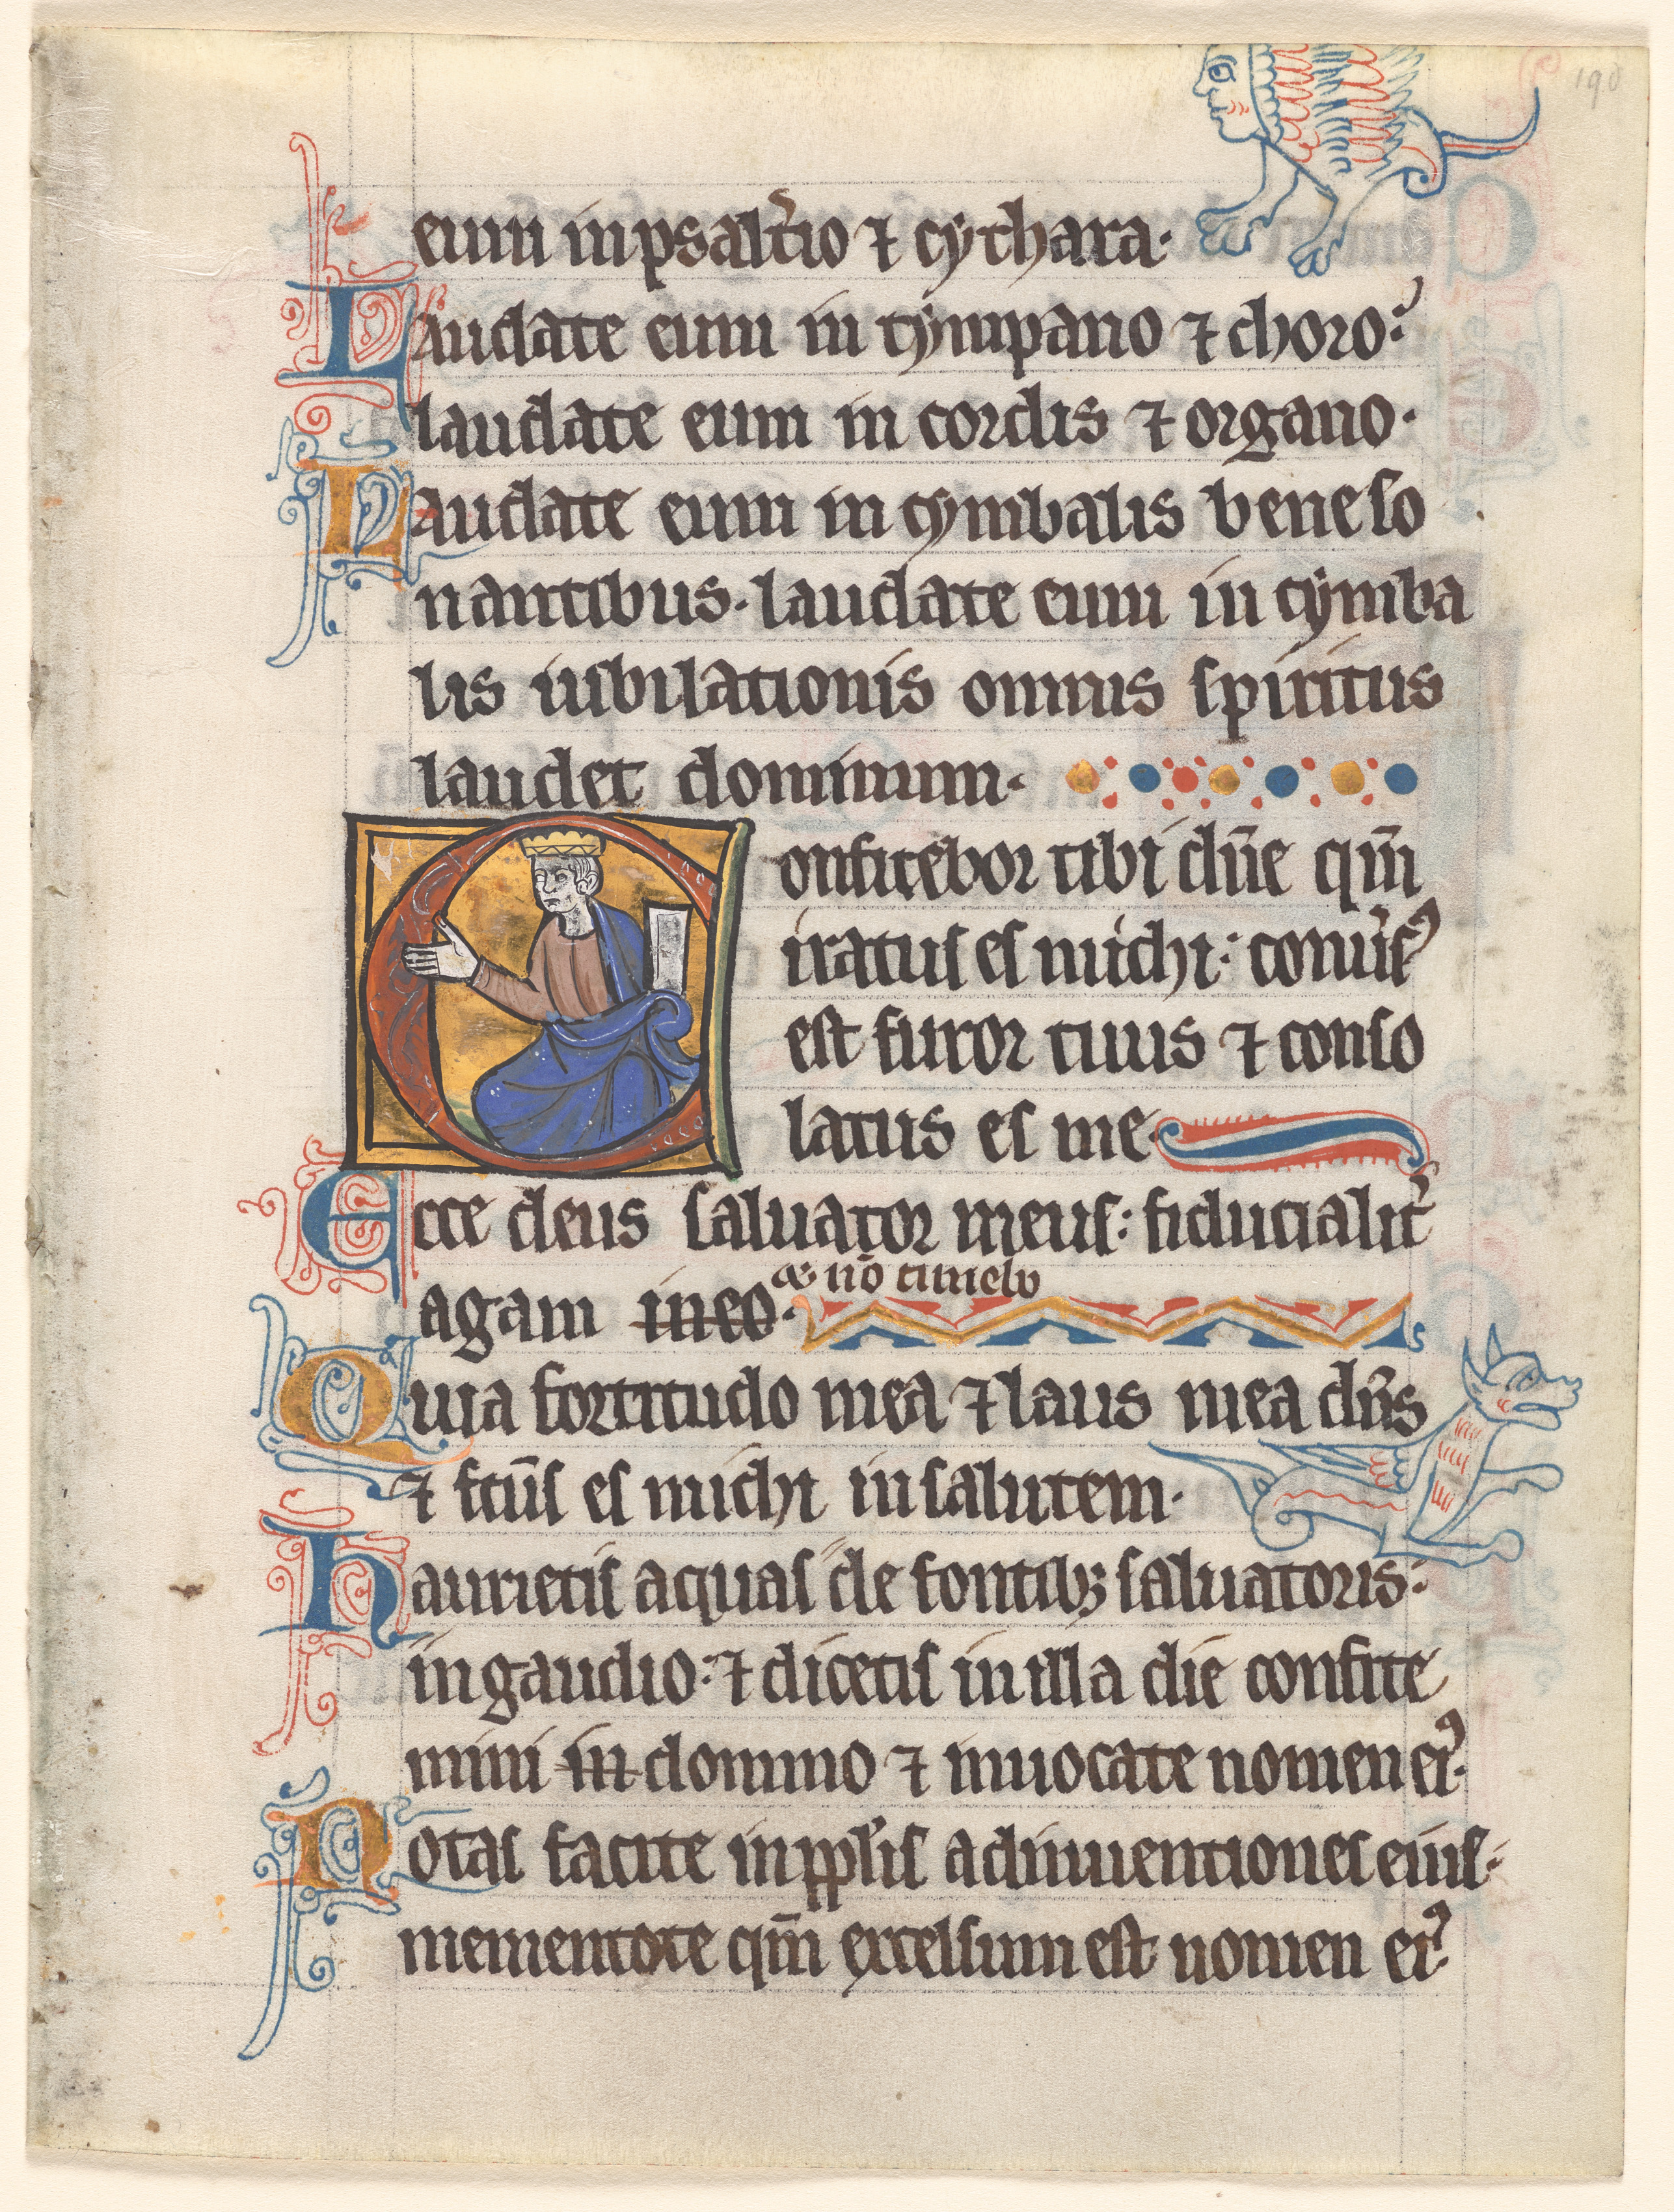 190
eum in psalt̾io ⁊ cythara·
Laudate eum in tympano ⁊ choro:
laudate eum in cordis ⁊ organo·
Laudate eum in cymbalis bene so
nantibus· laudate eum in cymba
lis iubilationis omnis spiritus
laudet dominum·
Confitebor tibi dn̄e qm̄
iratus es michi: conu̾sꝰ
est furor tuus ⁊ conso
latus es me·
Ecce deus saluator meus: fiducialit̾
& nō timebo
agam in eo·
Quia fortitudo mea ⁊ laus mea dn̄s
⁊ fcūs es michi in salutem·
Haurietis aquas de fontibꝫ saluatoris:
in gaudio: ⁊ dicetis in illa die confite
mini in domino ⁊ inuocate nomen eiꝰ·
Notas facite in ppl̾is adinuentiones eius·
mementote qm̄ excelsum est nomen eiꝰ·